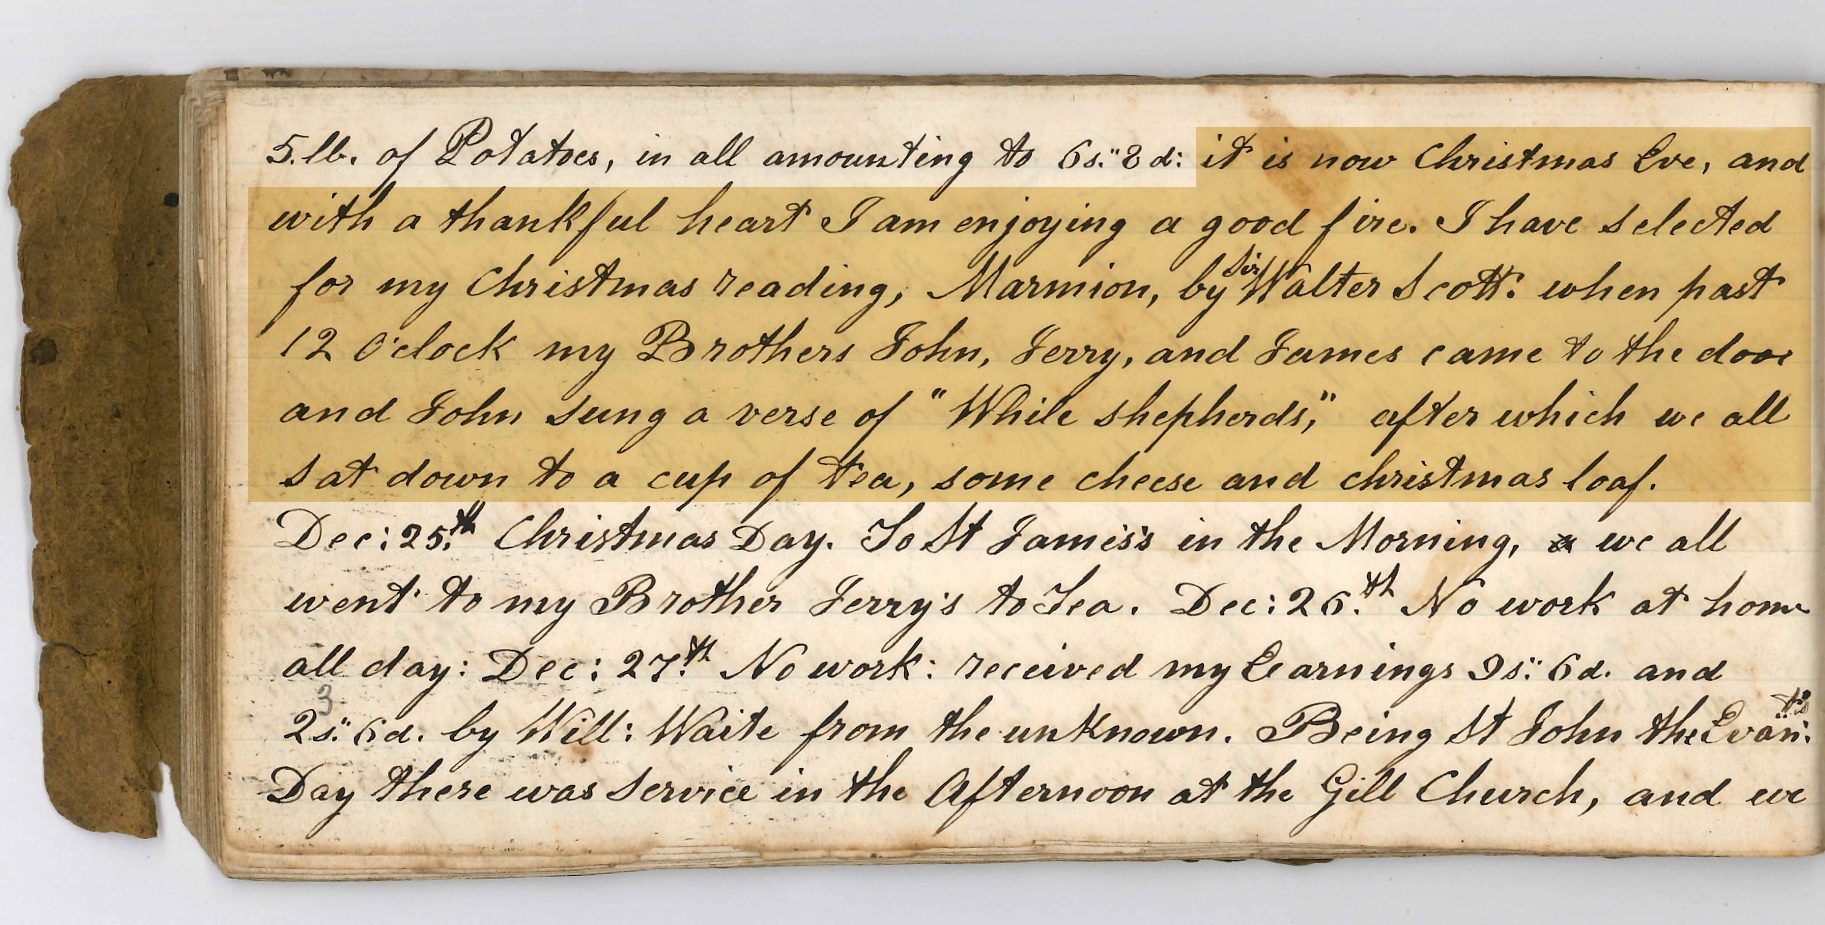 5.lb. of Potatoes, in all amounting to 6s:"8d: it is now Christmas Eve, and
with a thankful heart I am enjoying a good fire. I have selected
for my Christmas reading, Marmion, by Sir Walter Scott: when past
12 O'clock my Brothers John, Jerry, and James came to the door
and John sung a verse of "While shepherds," after which we all
sat down to a cup of tea, some cheese and christmas loaf.
Dec: 25th. Christmas Day. To St James's in the Morning, we all
went to my Brother Jerry's to Tea. Dec: 26th. No work at home
all day: Dec: 27th. No work: received my Earnings 9s:" 6d. and
3
2s:" 6d. by Will: Waite from the unknown. Being St John the Evan:ts
Day there was Service in the Afternoon at the Gill Church, and we